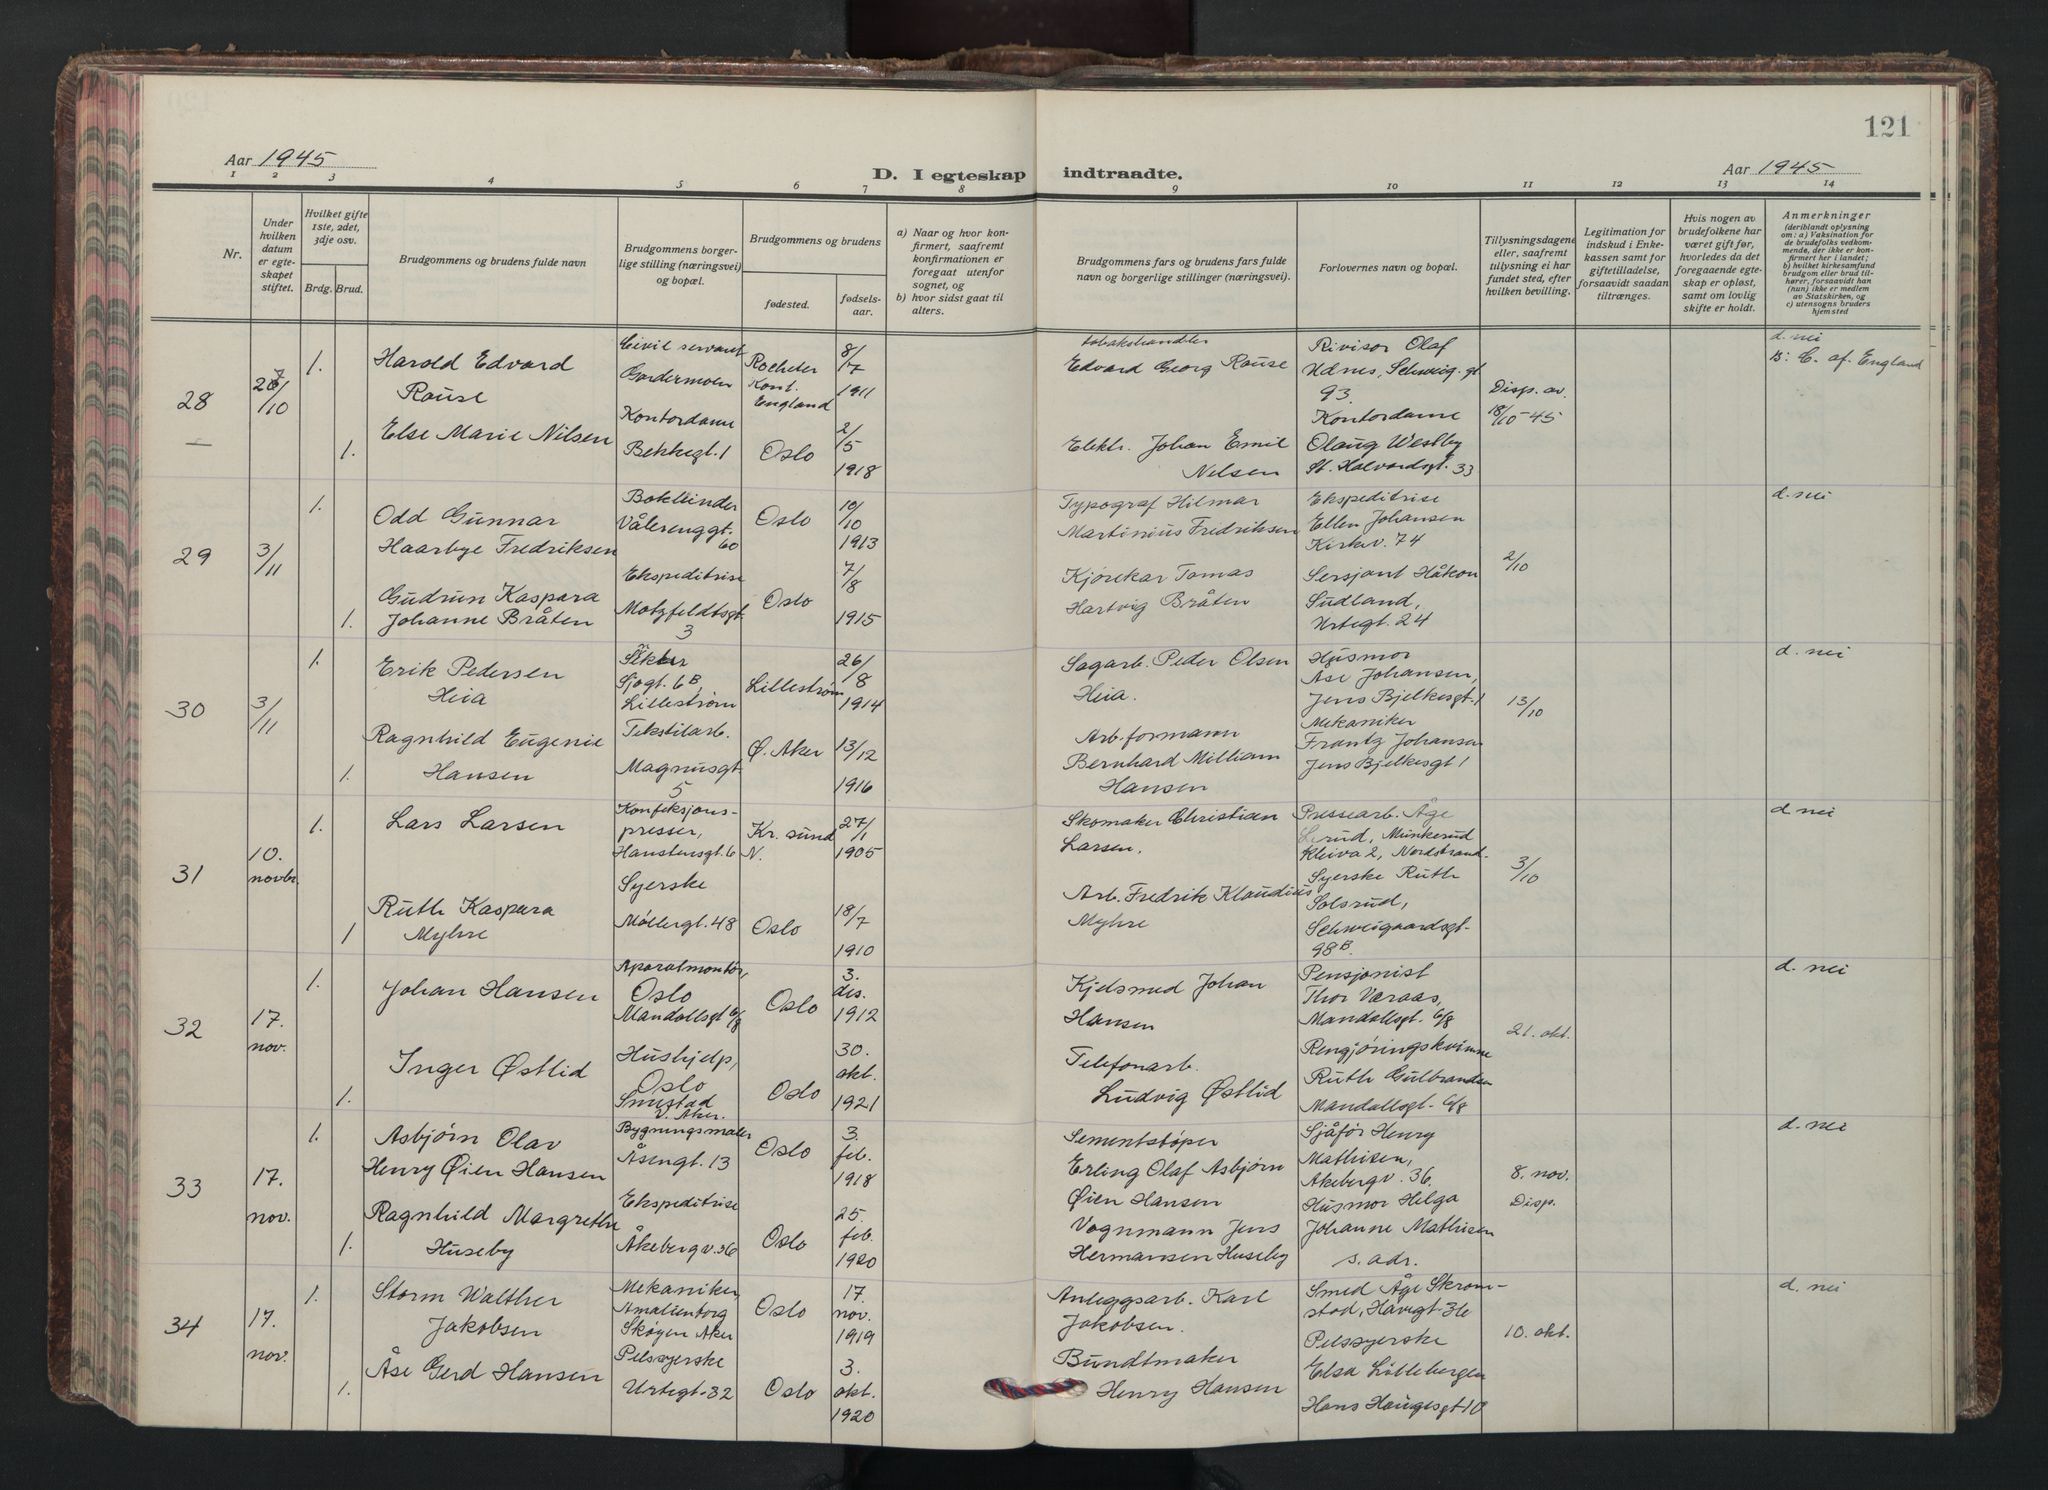 121
Aar 1945
D. I egteskap indtraadte.
Aar 1945
1 2 3 4 5 6 7 8 9 10 11 12 13 14
Nr.
Under hvilken datum er egteskapet stiftet.
Hvilket gifte 1ste, 2det, 3dje osv.
Brdg. Brud.
Brudgommens og brudens fulde navn
Brudgommens borgerlige stilling (næringsvei) og bopæl.
Brudgommens og brudens
fødested.
fødselsaar.
a) Naar og hvor konfirmert, saafremt konfirmationen er foregaat utenfor sognet, og
b) hvor sidst gaat til alters.
Brudgommens fars og brudens fars fulde navn og borgerlige stillinger (næringsvei).
Forlovernes navn og bopæl.
Tillysningsdagene eller, saafremt tillysning ei har fundet sted, efter hvilken bevilling.
Legitimation for indskud i Enkekassen samt for giftetilladelse, forsaavidt saadan tiltrænges.
Hvis nogen av brudefolkene har været gift før, hvorledes da det foregaaende egteskap er opløst, samt om lovlig skifte er holdt.
Anmerkninger
(deriblandt oplysning om: a) Vaksination for de brudefolks vedkommende, der ikke er konfirmert her i landet; b) hvilket kirkesamfund brudgom eller brud tilhører, forsaavidt han (hun) ikke er medlem av Statskirken, og c) utensogns bruders hjemsted
28
/10
1.
Harold Edvard
Rouse
Civil servant
Gardermoen
Rocheter
Kent.
England
8/7
1911
tobakshandler
Edvard Georg Rouse
Rivisor Olaf
Udnes, Schweig.gt
93.
Disp. av
18/10-45
d. nei
B: C. af England
—
1.
Else Marie Nilsen
Kontordame
Bekkegt. 1
Oslo
2/5
1918
Elektr. Johan Emil
Nilsen
Kontordame
Olaug Westby
St. Halvardsgt. 33
29
3/11
1.
Odd Gunnar
Haarbye Fredriksen
Bokbinder
Vålerenggt.
60
Oslo
10/10
1913
Typograf Hilmar
Martinius Fredriksen
Ekspeditrise
Ellen Johansen
Kirkv. 74
2/10
d. nei
1.
Gudrun Kaspara
Johanne Bråten
Ekspeditrise
Motzfeldtsgt.
3
Oslo
7/8
1915
Kjørekar Tomas
Hartvig Bråten
Sersjant Håkon
Sudland,
Urtegt. 24
30
3/11
1.
Erik Pedersen
Heia
Sjøgt. 6B,
Lillestrøm
Lillestrøm
26/8
1914
Sagarb. Peder Olsen
Heia.
Husmor
Åse Johansen,
Jens Bjelkesgt. 1
13/10
d. nei
1.
Ragnhild Eugenie
Hansen
Tekstilarb.
Magnusgt.
5
Ø. Aker
13/12
1916
Arb.formann
Bernhard Milliam
Hansen
Mekaniker
Frantz Johansen
Jens Bjelkesgt 1
31
10.
novbr
1.
Lars Larsen
Konfeksjonspresser,
Hanstensgt. 6
Kr. sund
N.
27/1
1905
Skomaker Christian
Larsen.
Pressearb. Åge
Munkerud
Kleiva 2, Nordstrand
3/10
d. nei
1
Ruth Kaspara
Myhre
Syerske
Møllergt. 48
Oslo
18/7
1910
Arb. Fredrik Klaudius
Myhre
Syerske Ruth
Solsrud,
Schweigaardsgt.
98B.
32
17.
nov.
1.
Johan Hansen
Aparatmontør
Oslo
Mandallsgt 6/8
Oslo
3.
des.
1912
Kjelsmed Johan
Hansen
Pensjonist
Thor Varaas,
Mandallsgt. 6/8
21. okt.
d. nei
1.
Inger Østlid
Hushjelp,
Oslo
Smestad
V. Aker.
Oslo
30.
okt.
1921
Telefonarb.
Ludvig Østlid
Rengjøringskvinne
Ruth Gulbrandsen
Mandallsgt. 6/8
33
17.
nov.
1.
Asbjørn Olav
Henry Øien Hansen
Bygningsmaler
Åsengt. 13
Oslo
3.
feb.
1918
Sementstøper
Erling Olaf Asbjørn
Øien Hansen
Sjåfør Henry
Mathisen,
Åkebergv. 36.
8. nov.
Disp.
d. nei
1.
Ragnhild Margrethe
Huseby
Ekspeditrise
Åkebergv. 36
Oslo
25.
feb.
1920
Vognmann Jens
Hermansen Huseby
Husmor Helga
Johanne Mathisen
s. adr.
34
17.
nov.
1.
Storm Walther
Jakobsen
Mekaniker
Amalienborg
Skøyen Aker
Oslo
17.
nov.
1919
Anleggsarb. Karl
Jakobsen.
Smed Åge Skromstad, Håvegt. 36
10. okt.
d. nei
1.
Åse Gerd Hansen
Pelssyerske
Urtegt. 32
Oslo
3.
okt.
1920
Bundtmaker
Henry Hansen
Pelssyerske
Elsa Løtlebergen
Hans Haugesgt 10